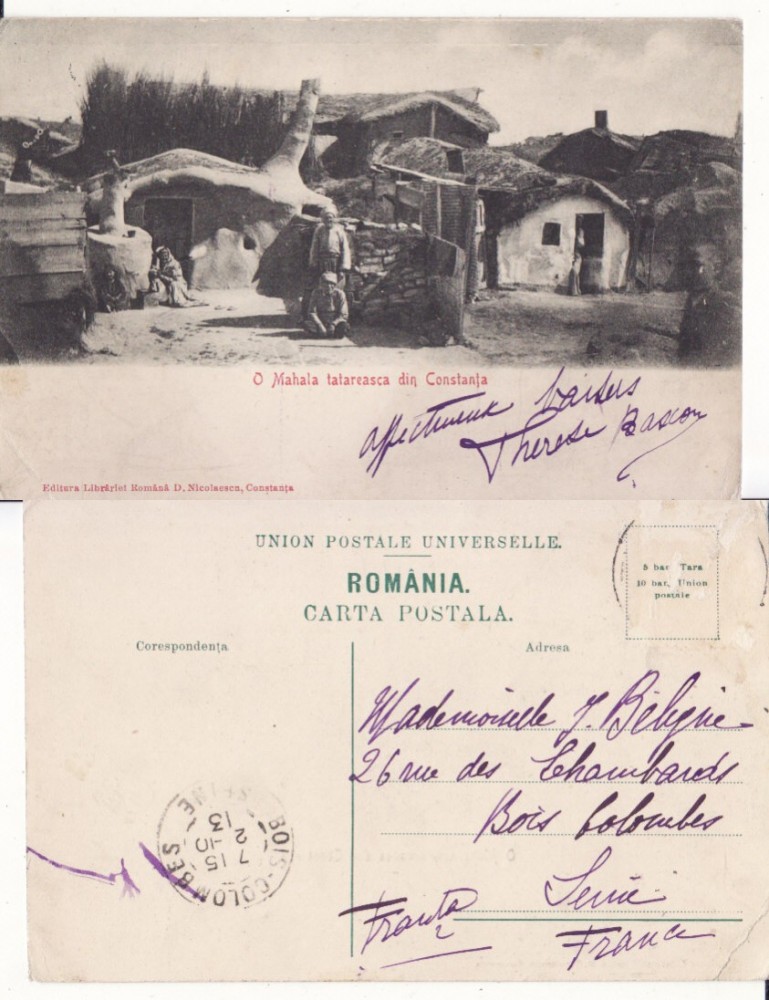 O Mahala tatareasca din Constanța
affectueux baisers
Therese Bascou
Editura Librăriei Română D. Nicolaescu, Constanța
UNION POSTALE UNIVERSELLE.
ROMÂNIA.
CARTA POSTALA.
5 bar Tara
10 bar, Union
postale
Corespondența
Adresa
Mademoiselle J. Béligne
26 rue des Chambards
Bois Colombes
Seine
Franța
France
BOIS-COLOMBES
SEINE
7 15
-10
2
13